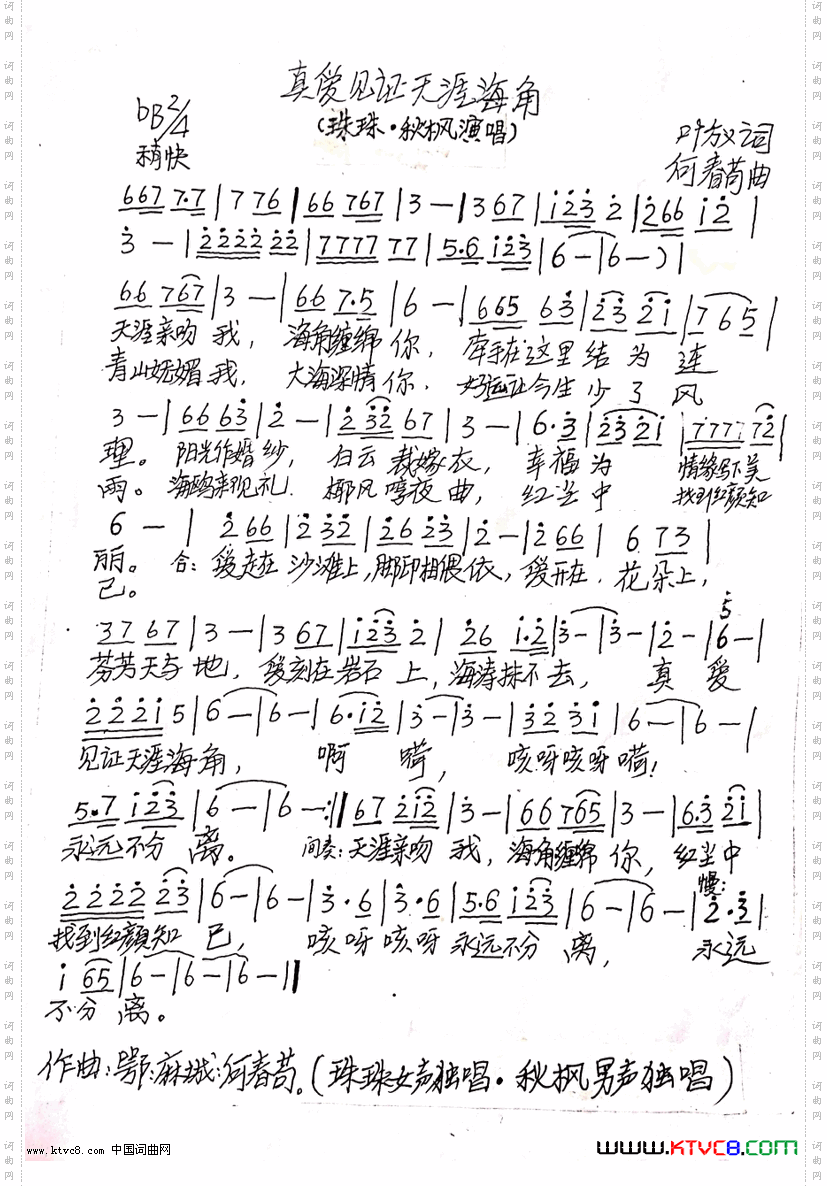 真爱见证天涯海角
(珠珠·秋枫演唱)
bB2/4
稍快
叶放义词
何春苟曲
667 7·7 | 7 76 | 66 767 | 3 — | 3 67 | i23 2 | 266 i2 |
3 — | 2222 22 | 7777 77 | 5·6 i23 | 6 — | 6 — ) |
66 767 | 3 — | 66 7·5 | 6 — | 665 63 | 23 2i | 7 65 |
天涯亲吻 我, 海角缠绵 你, 牵手在这里 结 为 连
青山妩媚 我, 大海深情 你. 好运让今生 少 了 风
3 — | 66 63 | 2 — | 2 32 67 | 3 — | 6·3 | 23 2i | 777 72 |
理。 阳光作婚 纱, 白云 裁嫁 衣, 幸福 为 情缘写下美
雨。 海鸥亲见 礼. 椰风 哼夜 曲, 红尘 中 找到红颜知
6 — | 2 66 | 2 32 | 26 23 | 2 — | 2 66 | 6 73 |
丽。 合: 爱走在 沙滩上, 脚印相偎 依, 爱开在 花朵上,
己。
37 67 | 3 — | 3 67 | i23 2 | 26 i·2 | 3 — | 3 — | 2 — | 6 — |
5
芬芳天与 地, 爱刻在岩石 上, 海涛抹不 去, 真 爱
222i 5 | 6 — | 6 — | 6·i2 | 3 — | 3 — | 32 3i | 6 — | 6 — |
见证天涯海 角, 啊 嗬, 咳呀咳呀 嗬!
5·7 i23 | 6 — | 6 — :|| 67 2i2 | 3 — | 66 765 | 3 — | 6·3 2i |
永远不分 离。 间奏: 天涯亲吻 我, 海角缠绵 你, 红尘中
2222 23 | 6 — | 6 — | 3·6 | 3·6 | 5·6 i23 | 6 — | 6 — | 2·3 |
慢:
找到红颜知 己, 咳呀 咳呀 永远不分 离, 永远
i 65 | 6 — | 6 — | 6 — ||
不分 离。
作曲:鄂:麻城:何春苟。(珠珠女声独唱·秋枫男声独唱)
www.ktvc8.com 中国词曲网
WWW.KTVC8.COM
词曲网